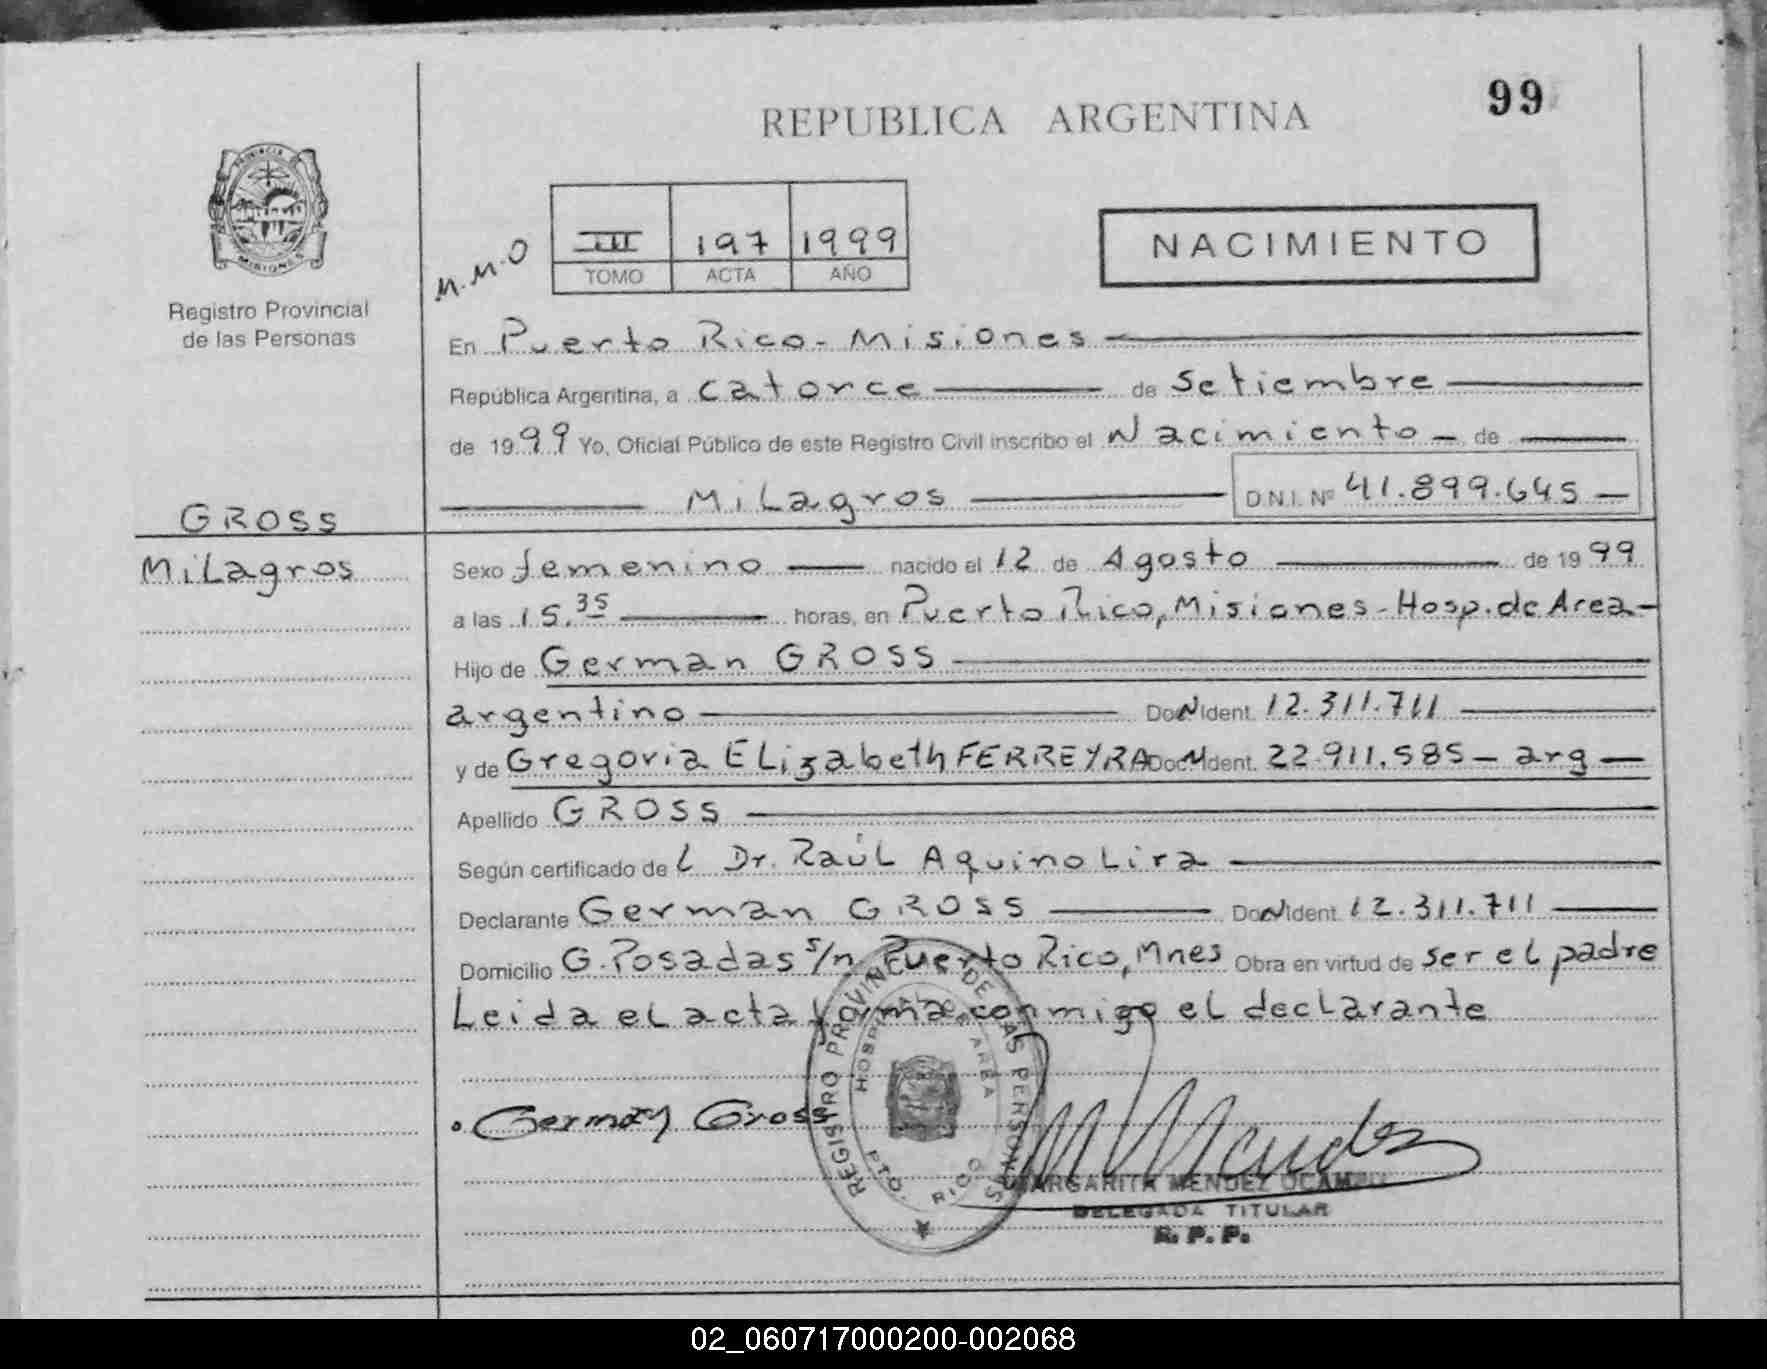 99
REPUBLICA ARGENTINA
PROVINCIA DE
MISIONES
Registro Provincial
de las Personas
M.M.O
III 197 1999
TOMO ACTA AÑO
NACIMIENTO
En Puerto Rico - Misiones
República Argentina, a catorce de Setiembre
de 1999 Yo, Oficial Público de este Registro Civil inscribo el Nacimiento de
Milagros D.N.I. Nº 41.899.645
GROSS
Milagros
Sexo femenino nacido el 12 de Agosto de 1999
a las 15.35 horas, en Puerto Rico, Misiones - Hosp. de Area
Hijo de German GROSS
argentino Doc Ident. 12.311.711
y de Gregoria ELizabeth FERREYRA Doc Ident. 22.911.585 - arg
Apellido GROSS
Según certificado de l Dr. Raúl Aquino Lira
Declarante German GROSS Doc Ident 12.311.711
Domicilio G. Posadas s/n Puerto Rico, Mnes Obra en virtud de ser el padre
Leida el acta firma conmigo el declarante
REGISTRO PROVINC. DE LAS PERSONAS
HOSPITAL DE AREA
PTO. RICO
German Gross
M Mendez
MARGARITA MENDEZ OCAMPO
DELEGADA TITULAR
R. P. P.
02_060717000200-002068